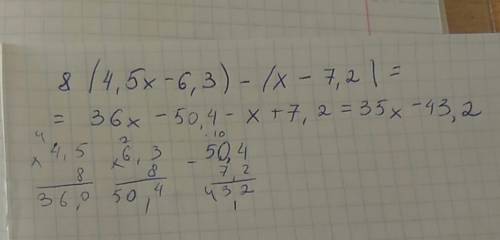 8 (4,5x - 6,3) - (x - 7,2) =
= 36x - 50,4 - x + 7,2 = 35x - 43,2
4 2 . 10
x 4,5 x 6,3 - 50,4
8 8 7,2
36,0 50,4 43,2